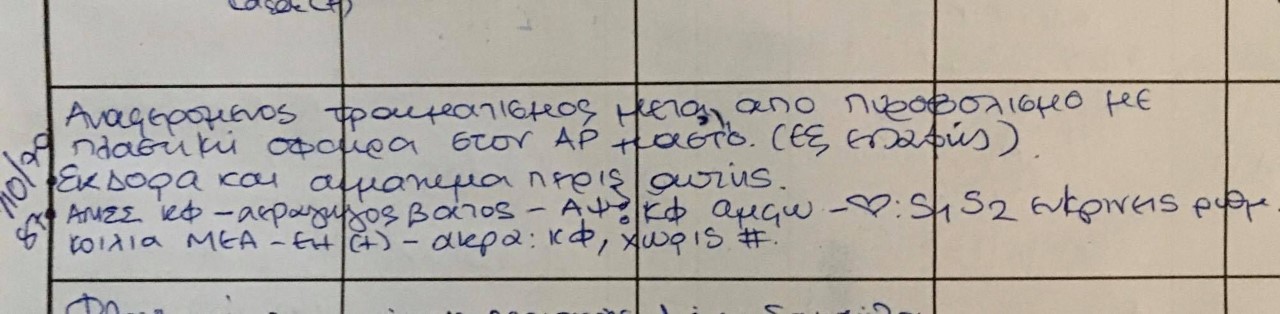 Αναφερόμενος τραυματισμός μετά από πυροβολισμό με
πλαστική σφαίρα στον ΑΡ μαστό. (εξ επαφής).
Εκδορά και αιμάτωμα πέριξ αυτής.
ΑΜΣΣ κφ - ακρα βατός - ΑΨ: κφ αμφω - ♡: S1 S2 ευκρινείς ρυθμ.
κοιλια ΜΕΑ - ΕΗ (+) - ακρα: κΦ, χωρίς #.